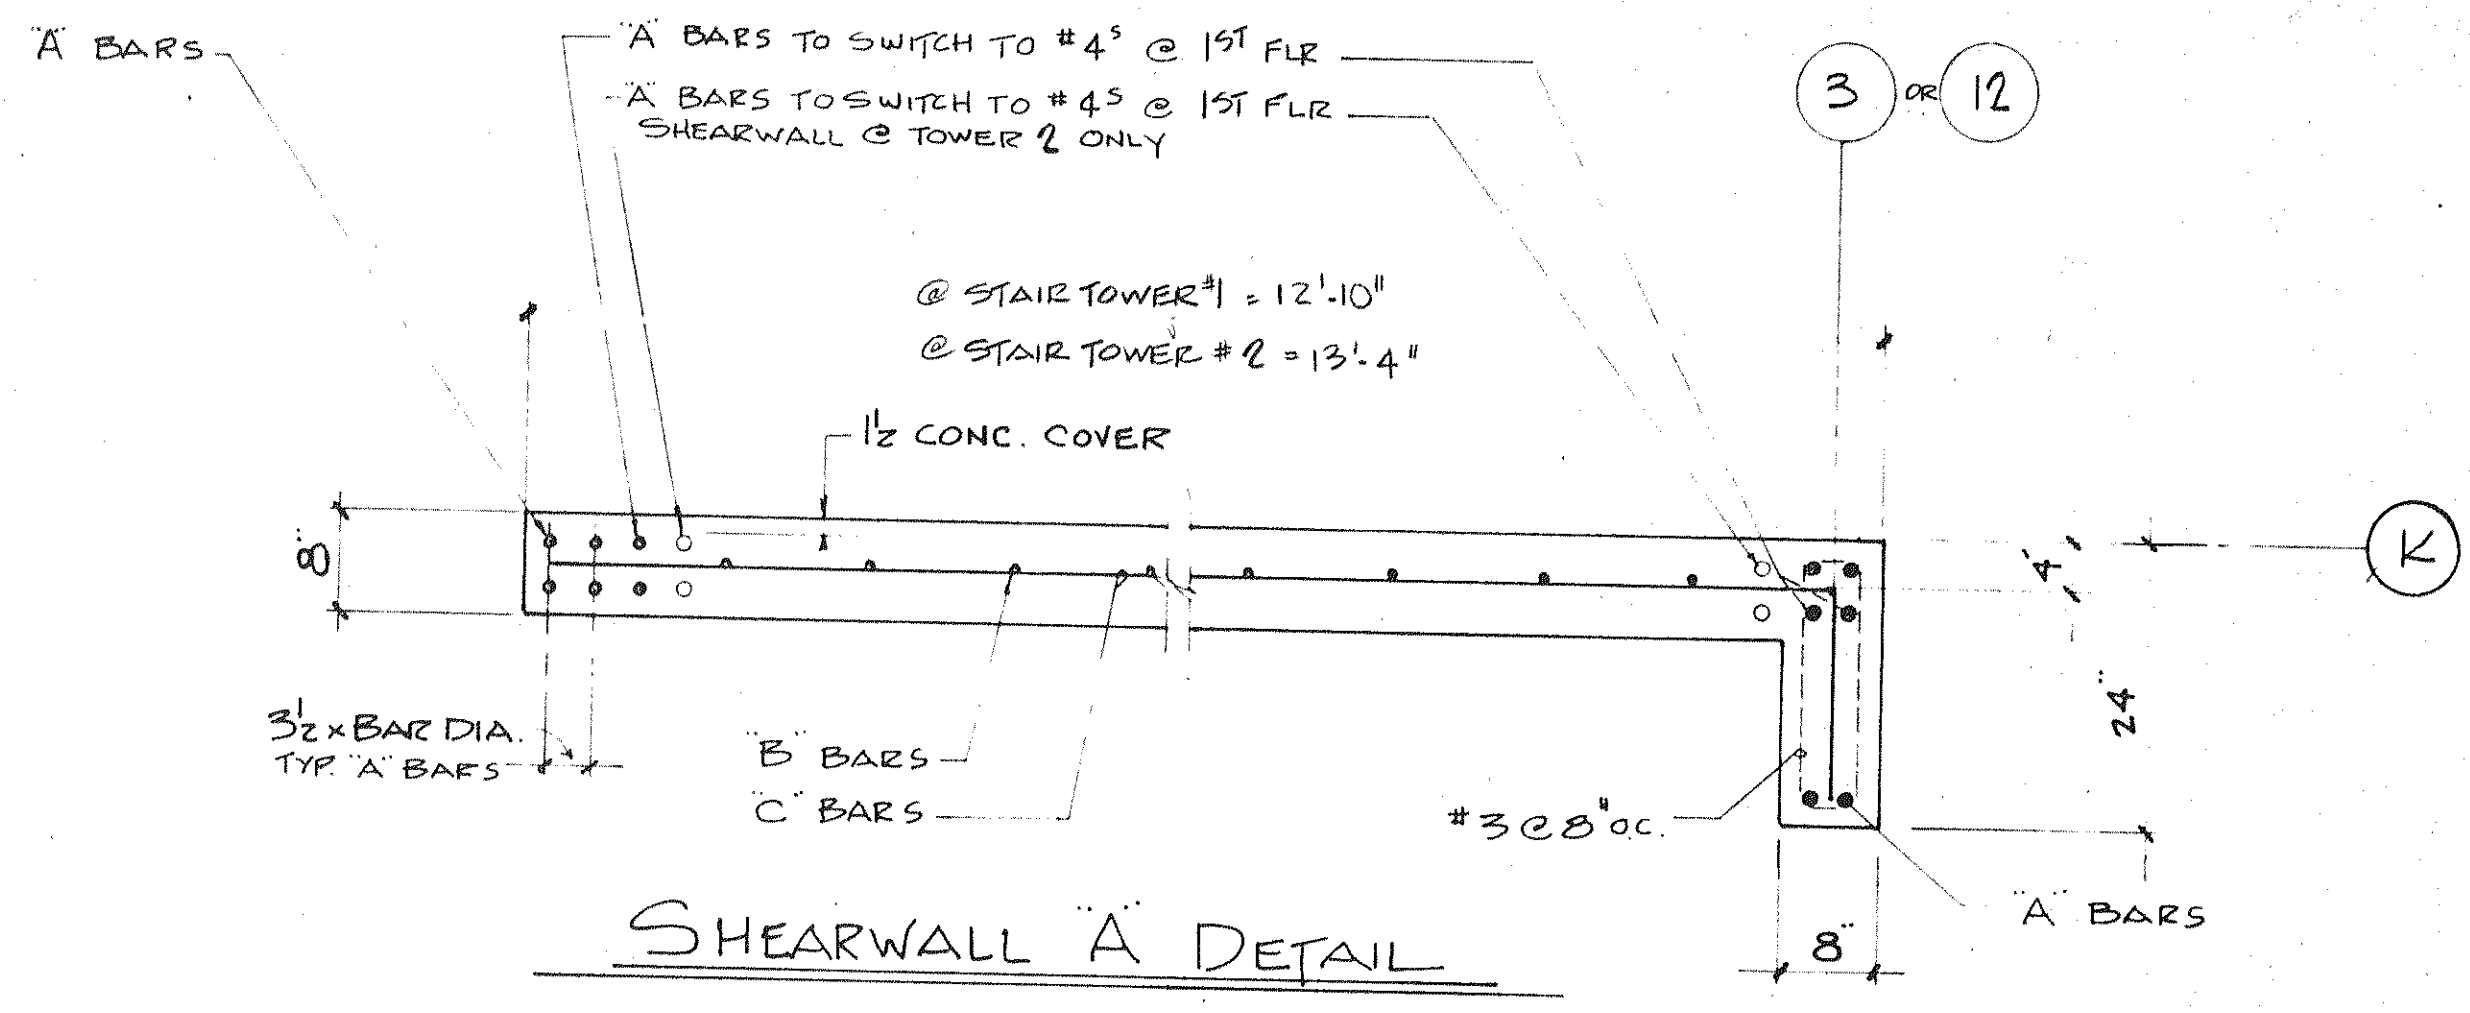 "A" BARS
"A" BARS TO SWITCH TO #4S @ 1ST FLR
"A" BARS TO SWITCH TO #4S @ 1ST FLR
SHEARWALL @ TOWER 2 ONLY
3 OR 12
@ STAIR TOWER #1 = 12'-10"
@ STAIR TOWER #2 = 13'-4"
1 1/2 CONC. COVER
8"
4"
K
24"
3 1/2 x BAR DIA.
TYP. "A" BARS
"B" BARS
"C" BARS
#3 @ 8" O.C.
"A" BARS
8"
SHEARWALL "A" DETAIL